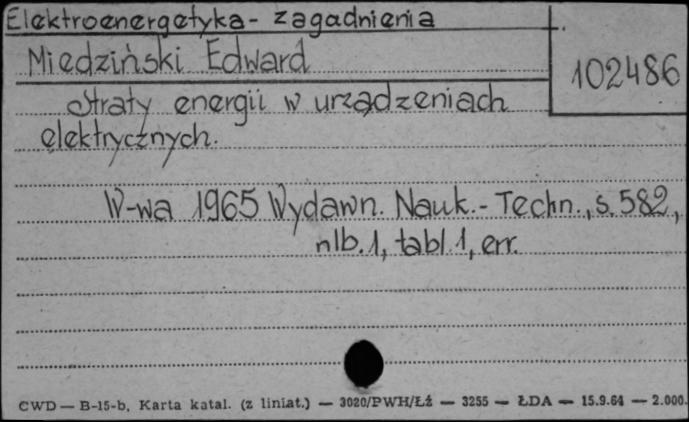 Elektroenergetyka - zagadnienia
Miedziński Edward
102486
Straty energii w urządzeniach
elektrycznych.
W-wa 1965 Wydawn. Nauk.-Techn., s. 582,
nlb. 1, tabl. 1, err.
CWD — B-15-b, Karta katal. (z liniat.) — 3020/PWH/Łź — 3255 — ŁDA — 15.9.64 — 2.000.